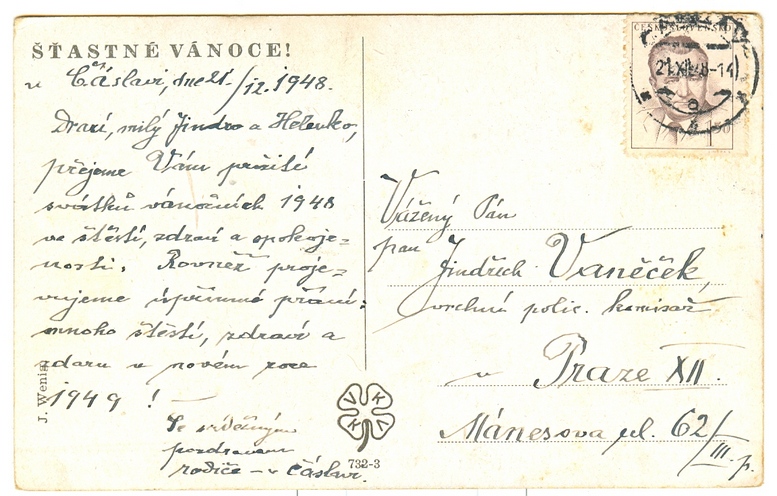 ŠŤASTNÉ VÁNOCE!
v Čáslavi, dne 21./12.1948.
Drazí, milý Jindro a Helenko,
přejeme Vám prožití
svátků vánočních 1948
ve štěstí, zdraví a spokoje=
nosti. Rovněž proje=
vujeme upřímné přání:
mnoho štěstí, zdraví a
zdaru v novém roce
1949! —
Se srdečným
pozdravem
rodiče – v Čáslavi.
J. Wenig
V K K V
732-3
ČESKOSLOVENSKO
1.50
21.XII.48-14
Vážený Pán
pan Jindřich Vaněček,
vrchní polic. komisař
v Praze XII.
Mánesova ul. 62/III. p.